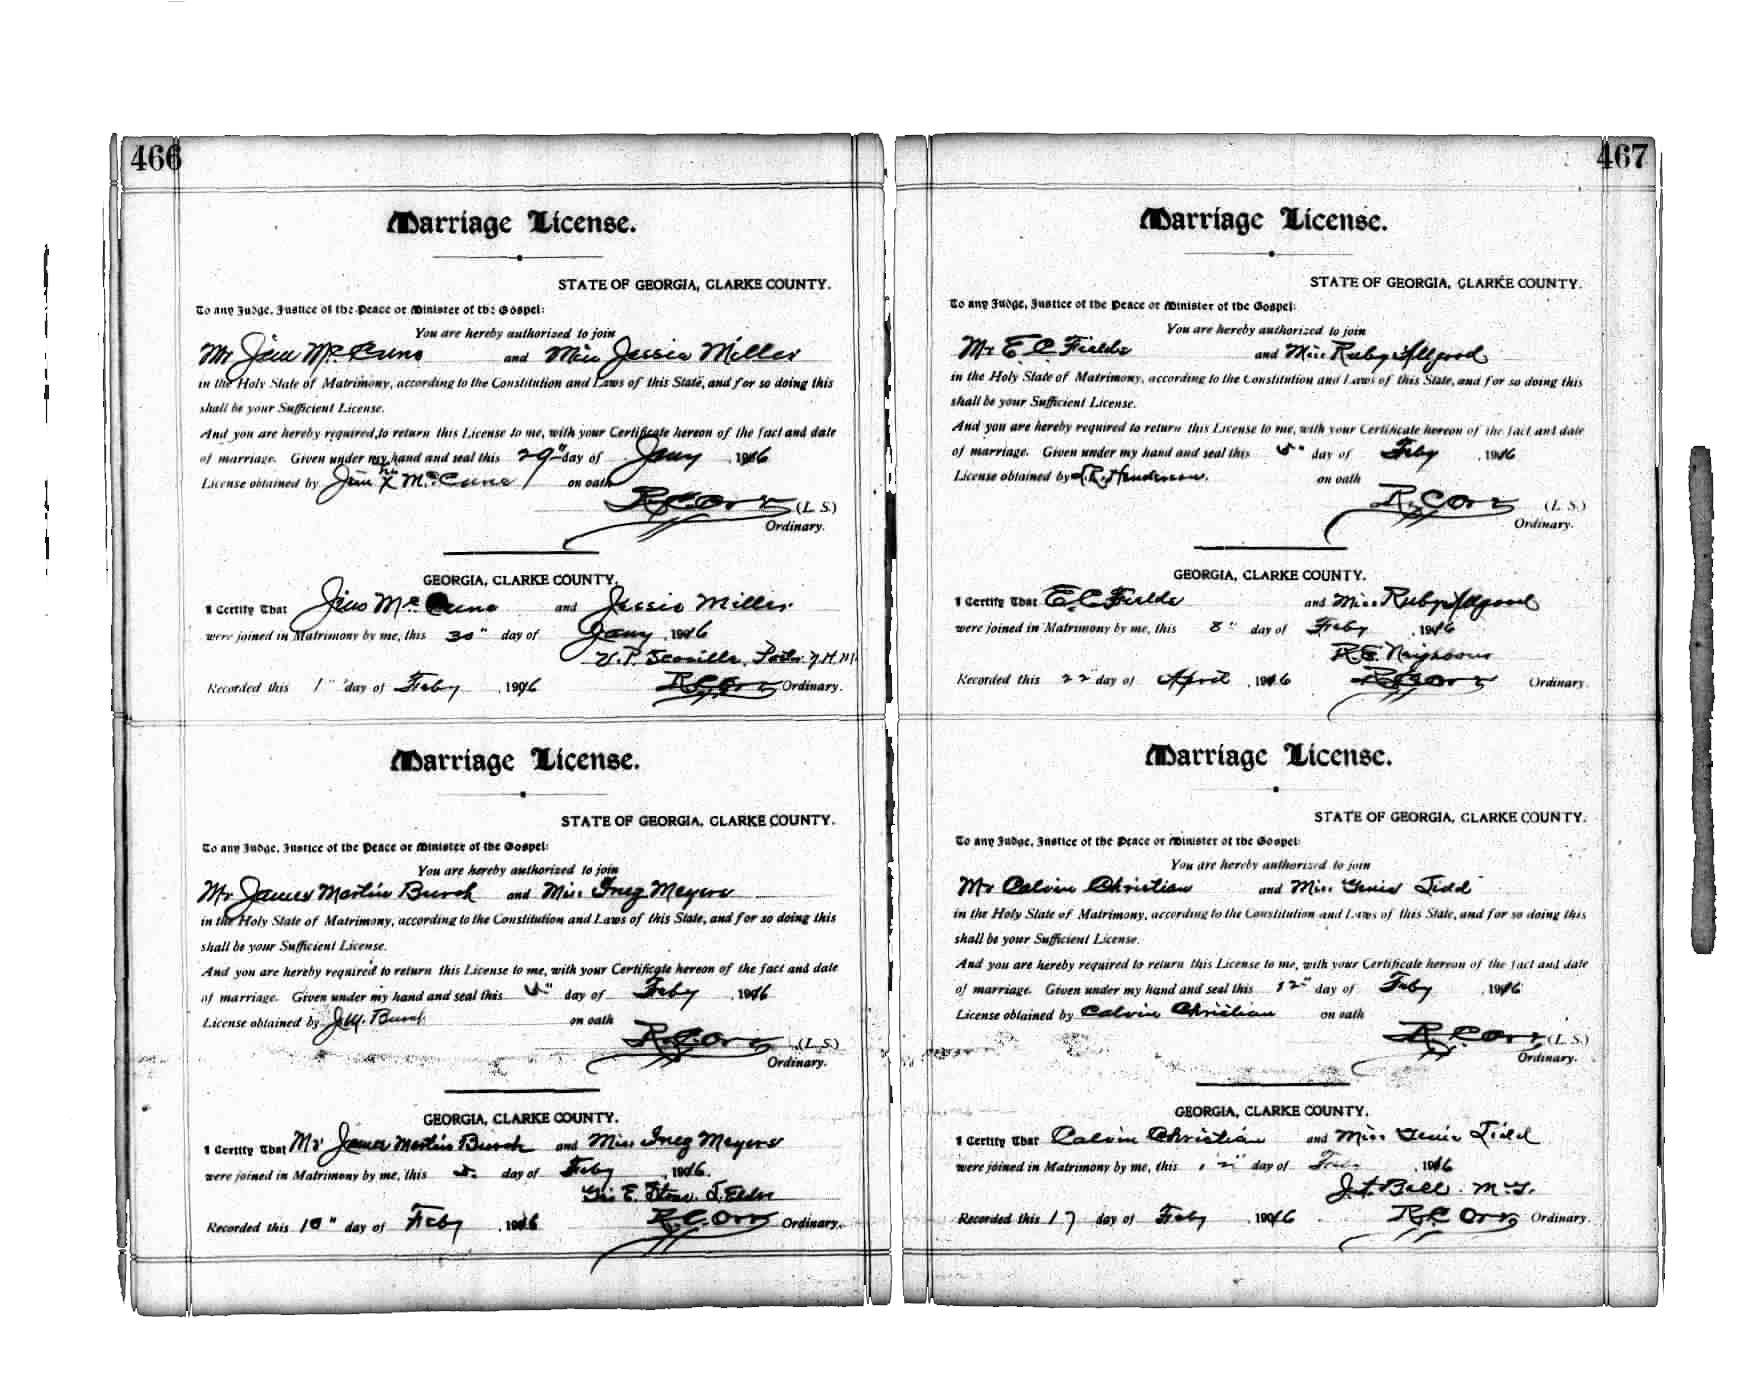 466
Marriage License.
STATE OF GEORGIA, CLARKE COUNTY.
To any Judge, Justice of the Peace or Minister of the Gospel:
You are hereby authorized to join
Mr Jim McCune and Miss Jessie Miller
in the Holy State of Matrimony, according to the Constitution and Laws of this State, and for so doing this
shall be your Sufficient License.
And you are hereby required to return this License to me, with your Certificate hereon of the fact and date
of marriage. Given under my hand and seal this 29" day of Jany 1916
License obtained by Jim X McCune on oath
R.C. Orr (L. S.)
Ordinary.
GEORGIA, CLARKE COUNTY.
I Certify That Jim McCune and Jessie Miller
were joined in Matrimony by me, this 30" day of Jany 1916
V. P. Scoville,
Recorded this 1" day of Feby 1916 R.C. Orr Ordinary.
Marriage License.
STATE OF GEORGIA, CLARKE COUNTY.
To any Judge, Justice of the Peace or Minister of the Gospel:
You are hereby authorized to join
Mr James Martin Burch and Miss Inez Meyers
in the Holy State of Matrimony, according to the Constitution and Laws of this State, and for so doing this
shall be your Sufficient License.
And you are hereby required to return this License to me, with your Certificate hereon of the fact and date
of marriage. Given under my hand and seal this 5" day of Feby 1916
License obtained by J.M. Burch on oath
R.C. Orr (L. S.)
Ordinary.
GEORGIA, CLARKE COUNTY.
I Certify That Mr James Martin Burch and Miss Inez Meyers
were joined in Matrimony by me, this 5. day of Feby 1916.
Geo E. Stone
Recorded this 10" day of Feby 1916 R.C. Orr Ordinary.
467
Marriage License.
STATE OF GEORGIA, CLARKE COUNTY.
To any Judge, Justice of the Peace or Minister of the Gospel:
You are hereby authorized to join
Mr E C Fields and Miss Ruby Allgood
in the Holy State of Matrimony, according to the Constitution and Laws of this State, and for so doing this
shall be your Sufficient License.
And you are hereby required to return this License to me, with your Certificate hereon of the fact and date
of marriage. Given under my hand and seal this 5" day of Feby 1916
License obtained by Henderson. on oath
R.C. Orr (L. S.)
Ordinary.
GEORGIA, CLARKE COUNTY.
I Certify That E.C. Fields and Miss Ruby Allgood
were joined in Matrimony by me, this 8" day of Feby 1916
R.E. Neighbour
Recorded this 22 day of April 1916 R.C. Orr Ordinary
Marriage License.
STATE OF GEORGIA, CLARKE COUNTY.
To any Judge, Justice of the Peace or Minister of the Gospel:
You are hereby authorized to join
Mr Calvin Christian and Miss Genie Tidd
in the Holy State of Matrimony, according to the Constitution and Laws of this State, and for so doing this
shall be your Sufficient License.
And you are hereby required to return this License to me, with your Certificate hereon of the fact and date
of marriage. Given under my hand and seal this 12" day of Feby 1916
License obtained by Calvin Christian on oath
R.C. Orr (L. S.)
Ordinary.
GEORGIA, CLARKE COUNTY.
I Certify That Calvin Christian and Miss Genie Tidd
were joined in Matrimony by me, this 12" day of Feby 1916
J.T. Bell. M.G.
Recorded this 17 day of Feby 1916 R.C. Orr Ordinary.